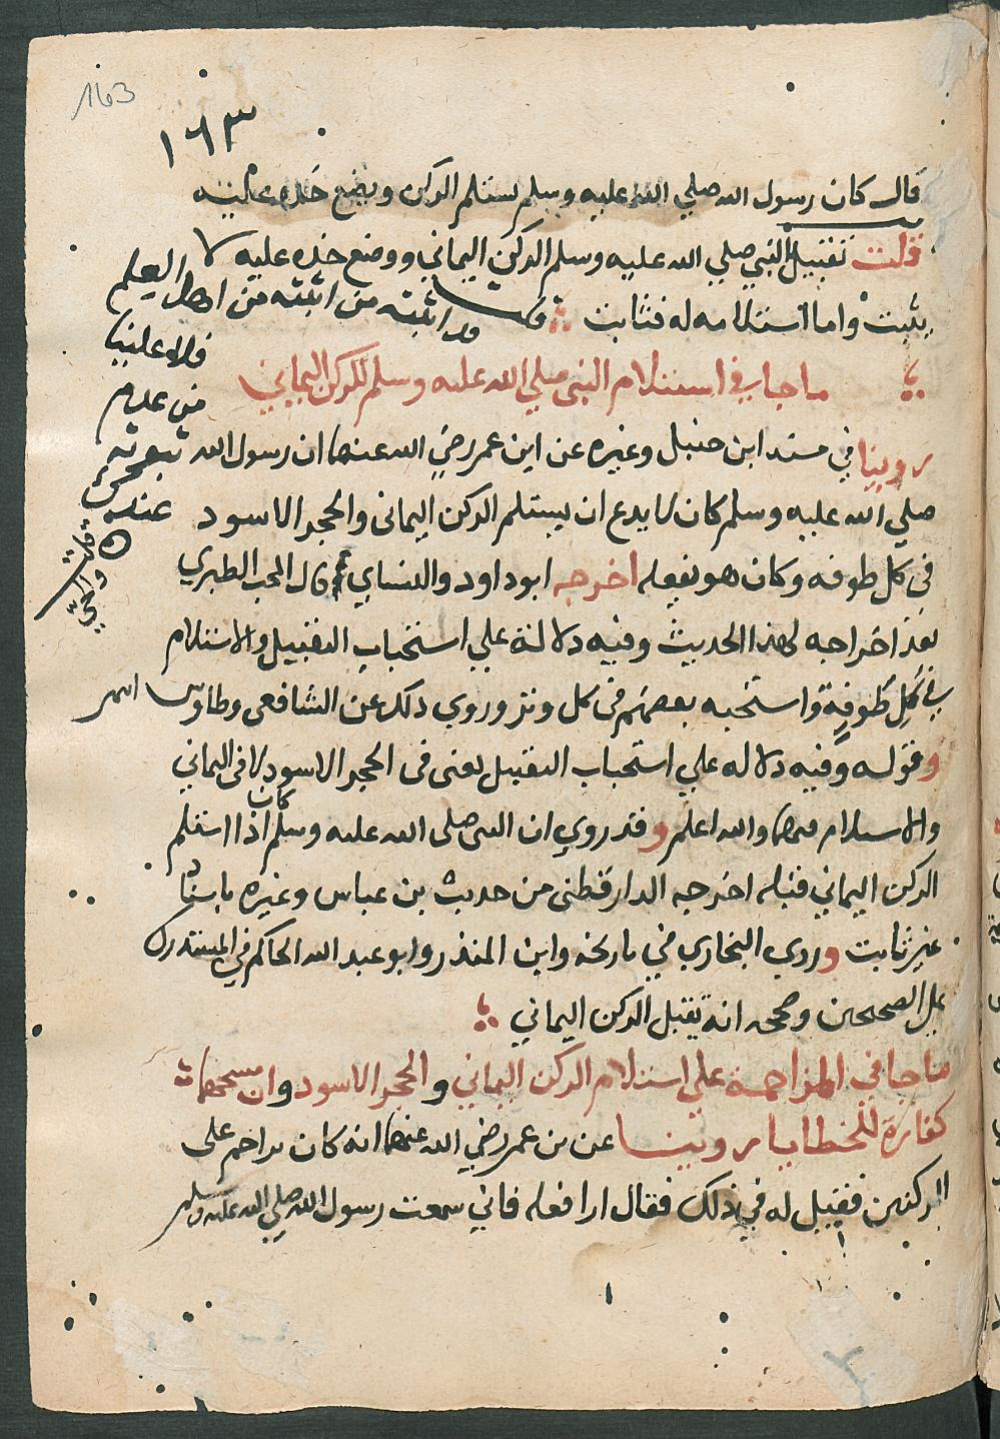 163
١٦٣
قال كان رسول الله صلي الله عليه وسلم يستلم الركن ويضع خده عليه
قلت تقبيل النبي صلي الله عليه وسلم الركن اليماني ووضع خده عليه لا
يثبت واما استلامه له فثابت قد اثبته من اثبته من اهل العلم
فلا علينا
من عدم
ثبوته
عندك
ما جا في استلام النبي صلي الله عليه وسلم للركن اليماني
روينا في مسند ابن حنبل وغيره عن ابن عمر رضي الله عنهما ان رسول الله
صلي الله عليه وسلم كان لا يدع ان يستلم الركن اليماني والحجر الاسود
في كل طوفه وكان هو يفعله اخرجه ابو داود والنساي قال المحب الطبري
بعد اخراجه لهذا الحديث وفيه دلالة علي استحباب التقبيل والاستلام
في كل طوفة واستحبه بعضهم في كل وتر وروي ذلك عن الشافعي وطاوس انتهى
وقوله وفيه دلاله علي استحباب التقبيل يعني في الحجر الاسود لا في اليماني
والاستلام فيهما والله اعلم وقد روي ان النبي صلى الله عليه وسلم كان اذا استلم
الركن اليماني قبله اخرجه الدارقطني من حديث بن عباس وغيره باسناد
غير ثابت وروي البخاري في تاريخه وابن المنذر وابو عبد الله الحاكم في المستدرك
على الصحيحين وصححه انه يقبل الركن اليماني
ما جا في المزاحمة علي استلام الركن اليماني والحجر الاسود وان مسحهما
كفارة للخطايا روينا عن بن عمر رضي الله عنهما انه كان يزاحم على
الركنين فقيل له في ذلك فقال ان افعله فاني سمعت رسول الله صلي الله عليه وسلم